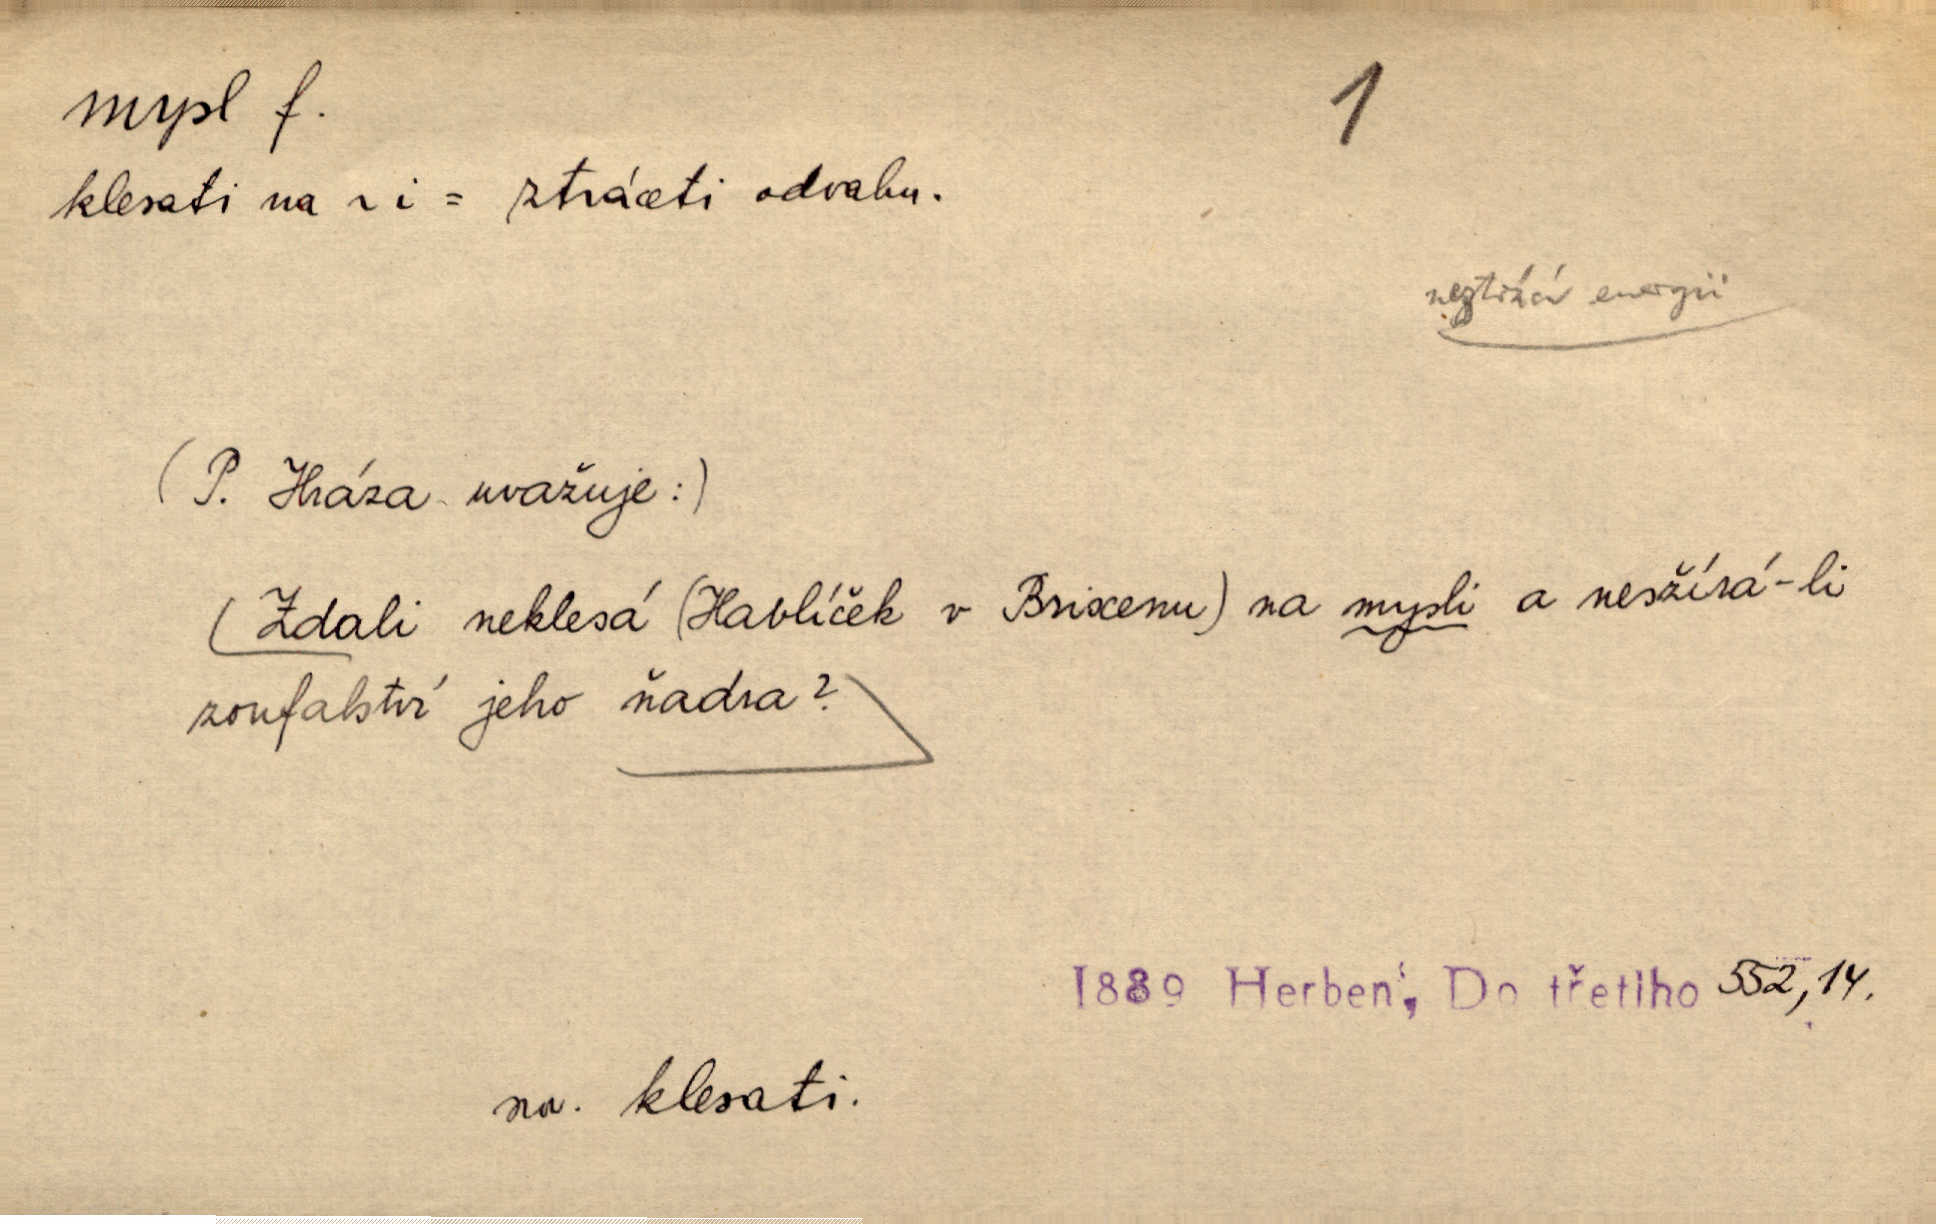 mysl f.
1
klesati na ~ i = ztráceti odvahu.
neztrácí energii
(P. Hráza uvažuje:)
(Zdali neklesá (Havlíček v Brixenu) na mysli a nesžírá-li
zoufalství jeho ňadra?
1889 Herben, Do třetího 552,14.
klesati.